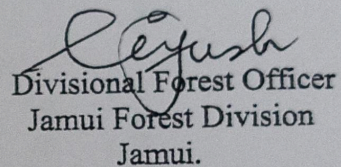 Divisional Forest Officer
Jamui Forest Division
Jamui.